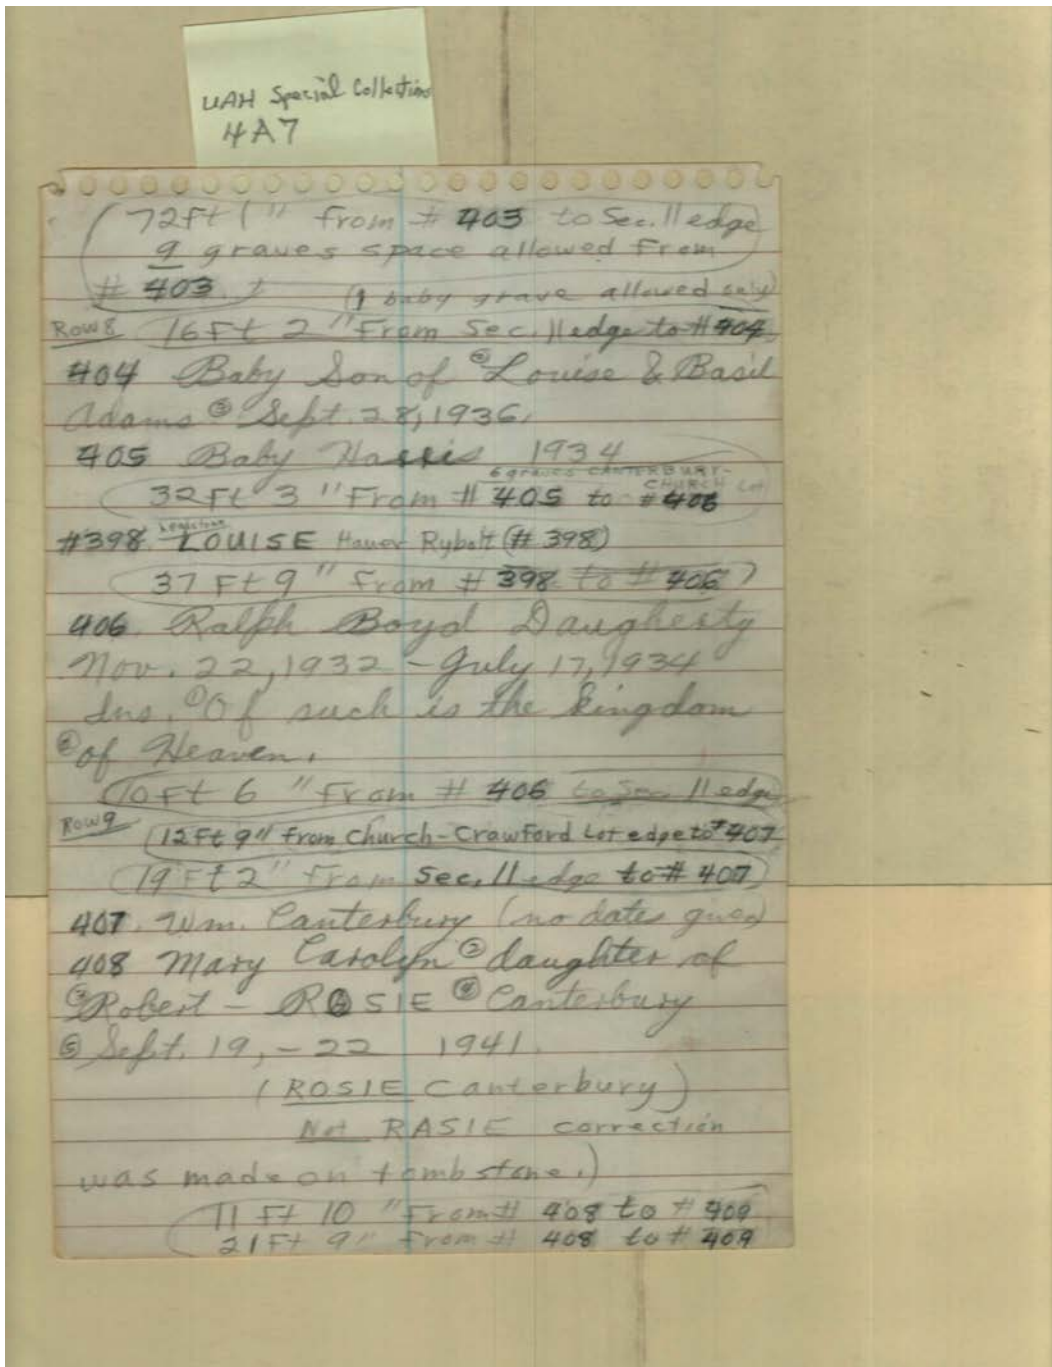 UAH Special Collections
4A7
(72ft 1" from # 403 to Sec. 11 edge
9 graves space allowed From
# 403.) (1 baby grave allowed only)
Row 8 16Ft 2" From Sec. 11 edge to # 404
404 Baby Son of ② Louise & Basil
Adams ③ Sept. 28, 1936.
405 Baby Harris 1934
6 graves CANTERBURY-
CHURCH Lot
(32Ft 3" From # 405 to # 406
#398. LOUISE Hauer Rybolt (# 398)
(37 Ft 9" From # 398 to # 406)
406. Ralph Boyd Daugherty
Nov. 22, 1932 - July 17, 1934
Ins. ① Of such is the kingdom
② of Heaven.
(10Ft 6" From # 406 to Sec 11 edge
Row 9 (12Ft 9" from Church-Crawford Lot edge to #407
(19Ft 2" From Sec. 11 edge to # 407)
407. Wm. Canterbury (no dates given)
408 Mary Carolyn ② daughter of
③ Robert - ROSIE ④ Canterbury
⑤ Sept. 19, - 22 1941.
(ROSIE Canterbury)
Not RASIE correction
was made on tombstone.)
(11 Ft 10" From # 408 to # 409
21Ft 9" From # 408 to # 409